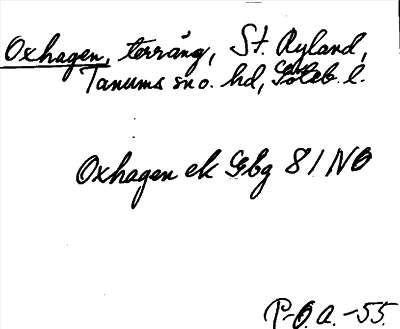 Oxhagen, terräng, St. Ryland,
Tanums sn o. hd, Göteb. l.
Oxhagen ek Gbg 81 NO
P-O.A. -55.